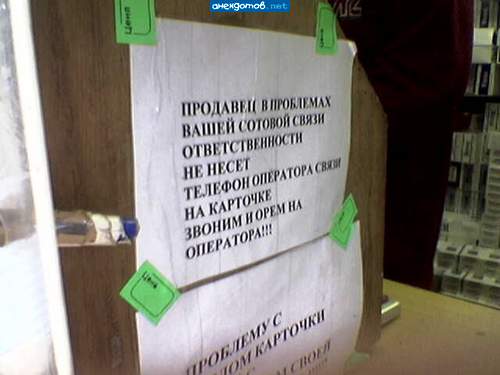 анекдотов.net
Цена
Цена
ПРОДАВЕЦ В ПРОБЛЕМАХ
ВАШЕЙ СОТОВОЙ СВЯЗИ
ОТВЕТСТВЕННОСТИ
НЕ НЕСЕТ
ТЕЛЕФОН ОПЕРАТОРА СВЯЗИ
НА КАРТОЧКЕ
ЗВОНИМ И ОРЕМ НА
ОПЕРАТОРА!!!
Цена
Цена
ПРОБЛЕМУ С
КАРТОЧКИ
СВОЕЙ